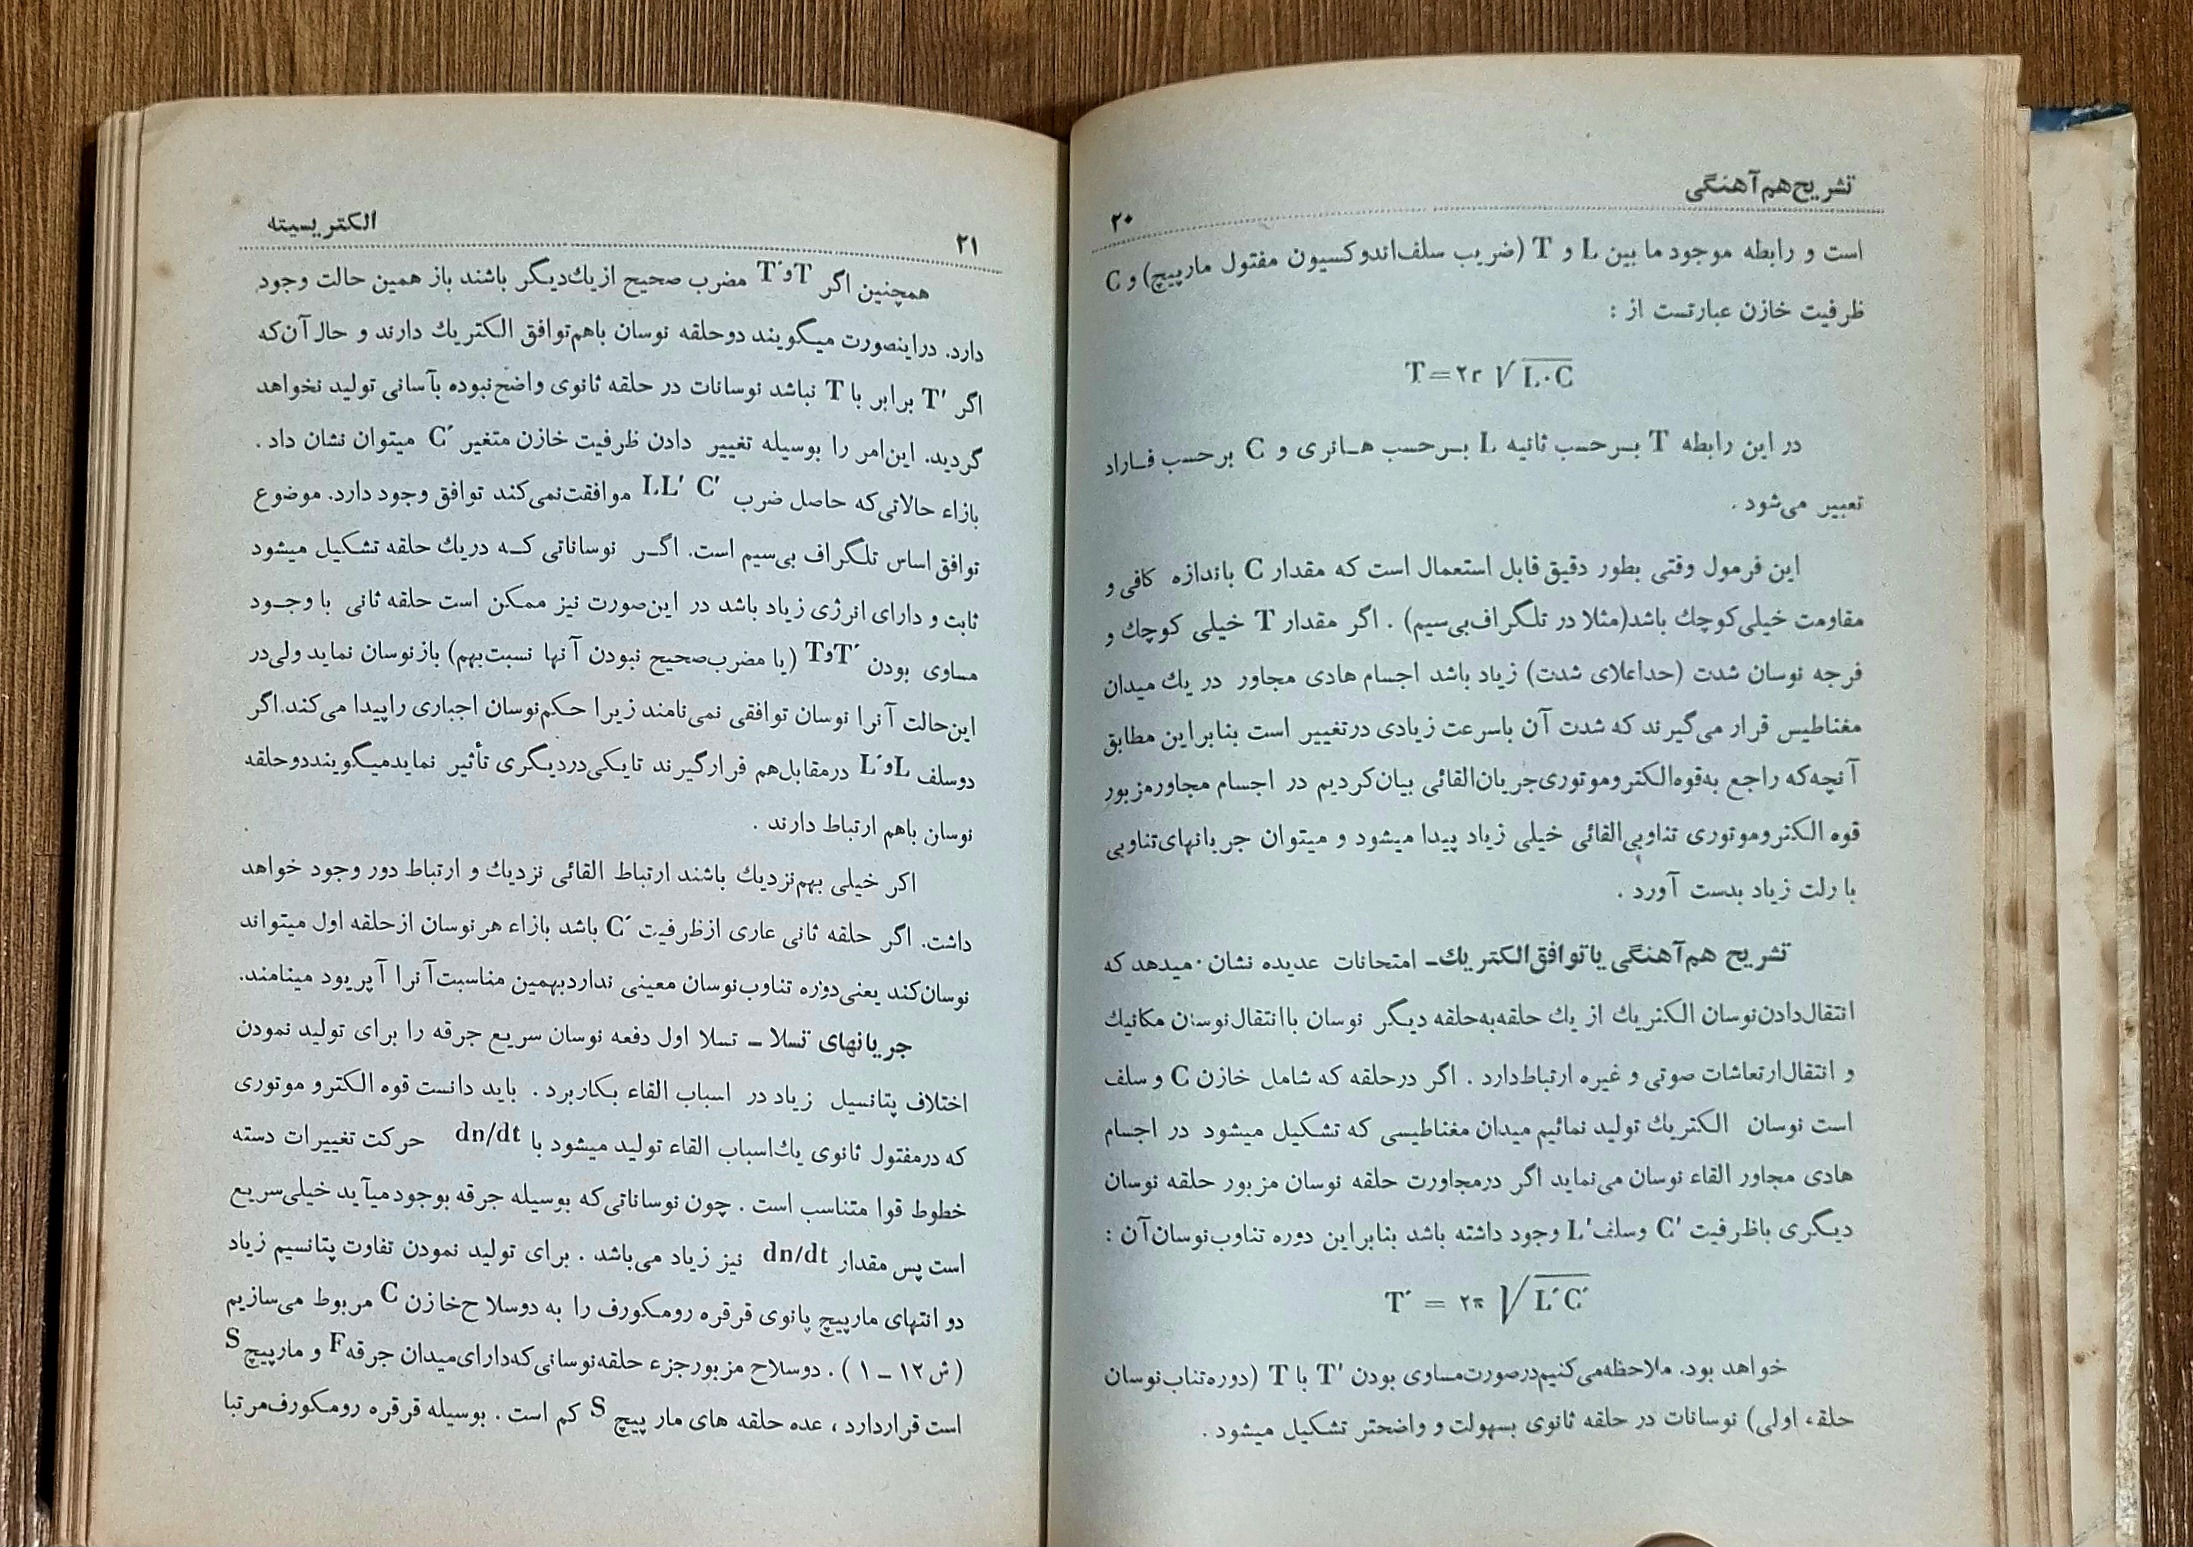 تشریح هم‌آهنگی
۲۰
است و رابطه موجود ما بین L و T (ضریب سلف‌اندوکسیون مفتول مارپیچ) و C
ظرفیت خازن عبارتست از :
T=۲r √L·C
در این رابطه T برحسب ثانیه L برحسب هانری و C برحسب فاراد
تعبیر می‌شود .
این فرمول وقتی بطور دقیق قابل استعمال است که مقدار C باندازه کافی و
مقاومت خیلی‌کوچك باشد(مثلا در تلگراف‌بی‌سیم) . اگر مقدار T خیلی کوچك و
فرجه نوسان شدت (حداعلای شدت) زیاد باشد اجسام هادی مجاور در یك میدان
مغناطیس قرار می‌گیرند که شدت آن باسرعت زیادی درتغییر است بنابراین مطابق
آنچه‌که راجع به‌قوه‌الکتروموتوری‌جریان‌القائی بیان‌کردیم در اجسام مجاورمزبور
قوه الکتروموتوری تناوبی‌القائی خیلی زیاد پیدا میشود و میتوان جریانهای‌تناوبی
با رلت زیاد بدست آورد .
تشریح هم‌آهنگی یاتوافق‌الکتریك_ امتحانات عدیده نشان میدهد که
انتقال‌دادن‌نوسان الکتریك از یك حلقه‌به‌حلقه دیگر نوسان باانتقال‌نوسان مکانیك
و انتقال‌ارتعاشات صوتی و غیره ارتباط‌دارد . اگر درحلقه که شامل خازن C و سلف
است نوسان الکتریك تولید نمائیم میدان مغناطیسی که تشکیل میشود در اجسام
هادی مجاور القاء نوسان می‌نماید اگر درمجاورت حلقه نوسان مزبور حلقه نوسان
دیگری باظرفیت C′ وسلف L′ وجود داشته باشد بنابراین دوره تناوب‌نوسان‌آن :
T′ = ۲π √L′C′
خواهد بود. ملاحظه‌می‌کنیم‌درصورت‌مساوی بودن T′ با T (دوره‌تناب‌نوسان
حلقه اولی) نوسانات در حلقه ثانوی بسهولت و واضحتر تشکیل میشود .
۲۱
الکتریسیته
همچنین اگر T′وT مضرب صحیح ازیك‌دیگر باشند باز همین حالت وجود
دارد. دراینصورت میگویند دوحلقه نوسان باهم‌توافق الکتریك دارند و حال‌آن‌که
اگر T′ برابر با T نباشد نوسانات در حلقه ثانوی واضح‌نبوده بآسانی تولید نخواهد
گردید. این‌امر را بوسیله تغییر دادن ظرفیت خازن متغیر C′ میتوان نشان داد .
بازاء حالاتی‌که حاصل ضرب LL′ C′ موافقت‌نمی‌کند توافق وجود دارد. موضوع
توافق اساس تلگراف بی‌سیم است. اگر نوساناتی که دریك حلقه تشکیل میشود
ثابت و دارای انرژی زیاد باشد در این‌صورت نیز ممکن است حلقه ثانی با وجود
مساوی بودن T′وT (یا مضرب‌صحیح نبودن آنها نسبت‌بهم) بازنوسان نماید ولی‌در
این‌حالت آنرا نوسان توافقی نمی‌نامند زیرا حکم‌نوسان اجباری راپیدا می‌کند.اگر
دوسلف L′وL درمقابل‌هم قرارگیرند تایکی‌دردیگری تأثیر نمایدمیگوینددوحلقه
نوسان باهم ارتباط دارند .
اکر خیلی بهم‌نزدیك باشند ارتباط القائی نزدیك و ارتباط دور وجود خواهد
داشت. اگر حلقه ثانی عاری ازظرفیت C′ باشد بازاء هرنوسان ازحلقه اول میتواند
نوسان‌کند یعنی‌دوره تناوب‌نوسان معینی نداردبهمین مناسبت‌آنرا آپریود مینامند.
جریانهای تسلا _ تسلا اول دفعه نوسان سریع جرقه را برای تولید نمودن
اختلاف پتانسیل زیاد در اسباب القاء بکاربرد . باید دانست قوه الکترو موتوری
که درمفتول ثانوی یك‌اسباب القاء تولید میشود با dn/dt حرکت تغییرات دسته
خطوط قوا متناسب است . چون نوساناتی‌که بوسیله جرقه بوجودمیآید خیلی‌سریع
است پس مقدار dn/dt نیز زیاد می‌باشد . برای تولید نمودن تفاوت پتانسیم زیاد
دو انتهای مارپیچ پانوی قرقره رومکورف را به دوسلاح‌خازن C مربوط می‌سازیم
(ش۱۲ _ ۱) . دوسلاح مزبورجزء حلقه‌نوسانی‌که‌دارای‌میدان جرقه F و مارپیچ S
است قراردارد ، عده حلقه های مار پیچ S کم است . بوسیله قرقره رومکورف‌مرتبا